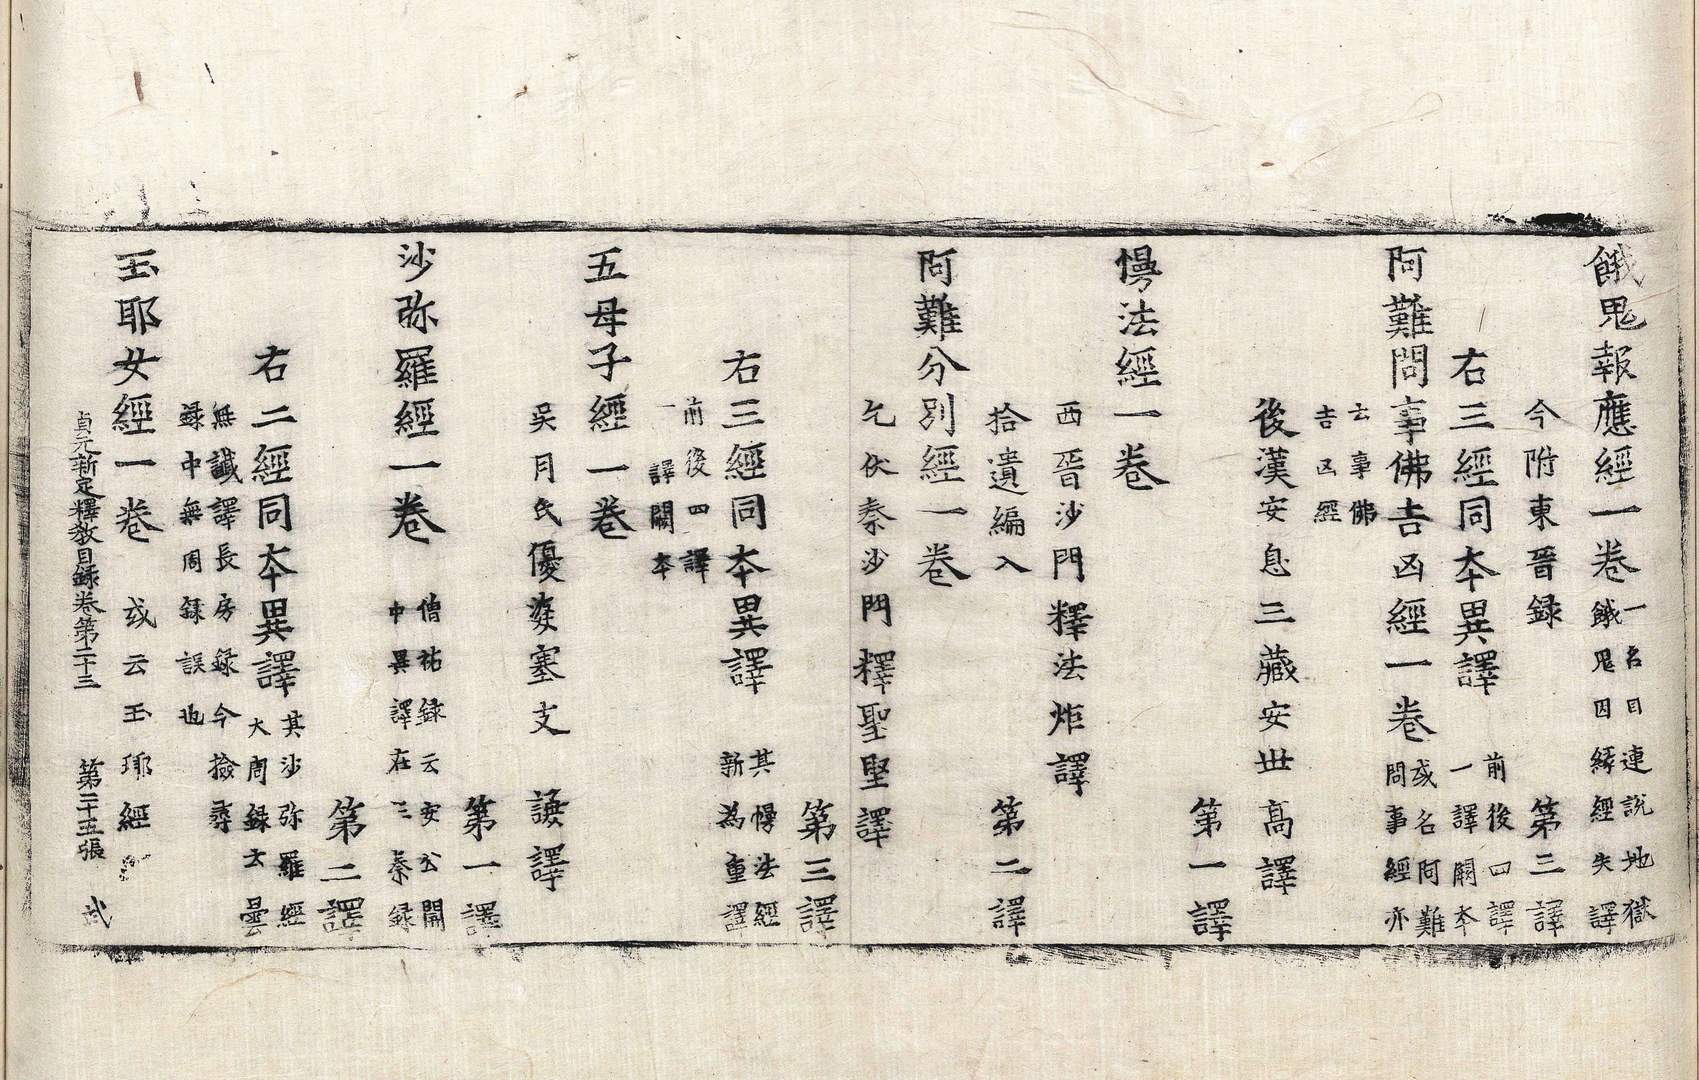 餓鬼報應經一卷 一名目連說地獄
餓鬼因緣經失譯
今附東晉録 第三譯
右三經同本異譯 前後四譯
一譯闕本
阿難問事佛吉凶經一卷 或名阿難
問事經亦
云事佛
吉凶經
後漢安息三藏安世高譯
第一譯
慢法經一卷
西晉沙門釋法炬譯
拾遺編入 第二譯
阿難分別經一卷
乞伏秦沙門釋聖堅譯
第三譯
右三經同本異譯 其慢法經
新為重譯
前後四譯
一譯闕本
五母子經一卷
吴月氏優婆塞支謙譯
第一譯
沙弥羅經一卷 僧祐録云安公關
中異譯在三秦録
第二譯
右二經同本異譯 其沙弥羅經
大周録云曇
無讖譯長房録今撿尋
録中無周録誤也
玉耶女經一卷 或云玉瑘經
貞元新定釋教目録卷第二十三 第二十五張 武